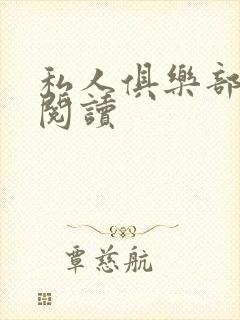 私人俱樂部
閱讀
覃慈航